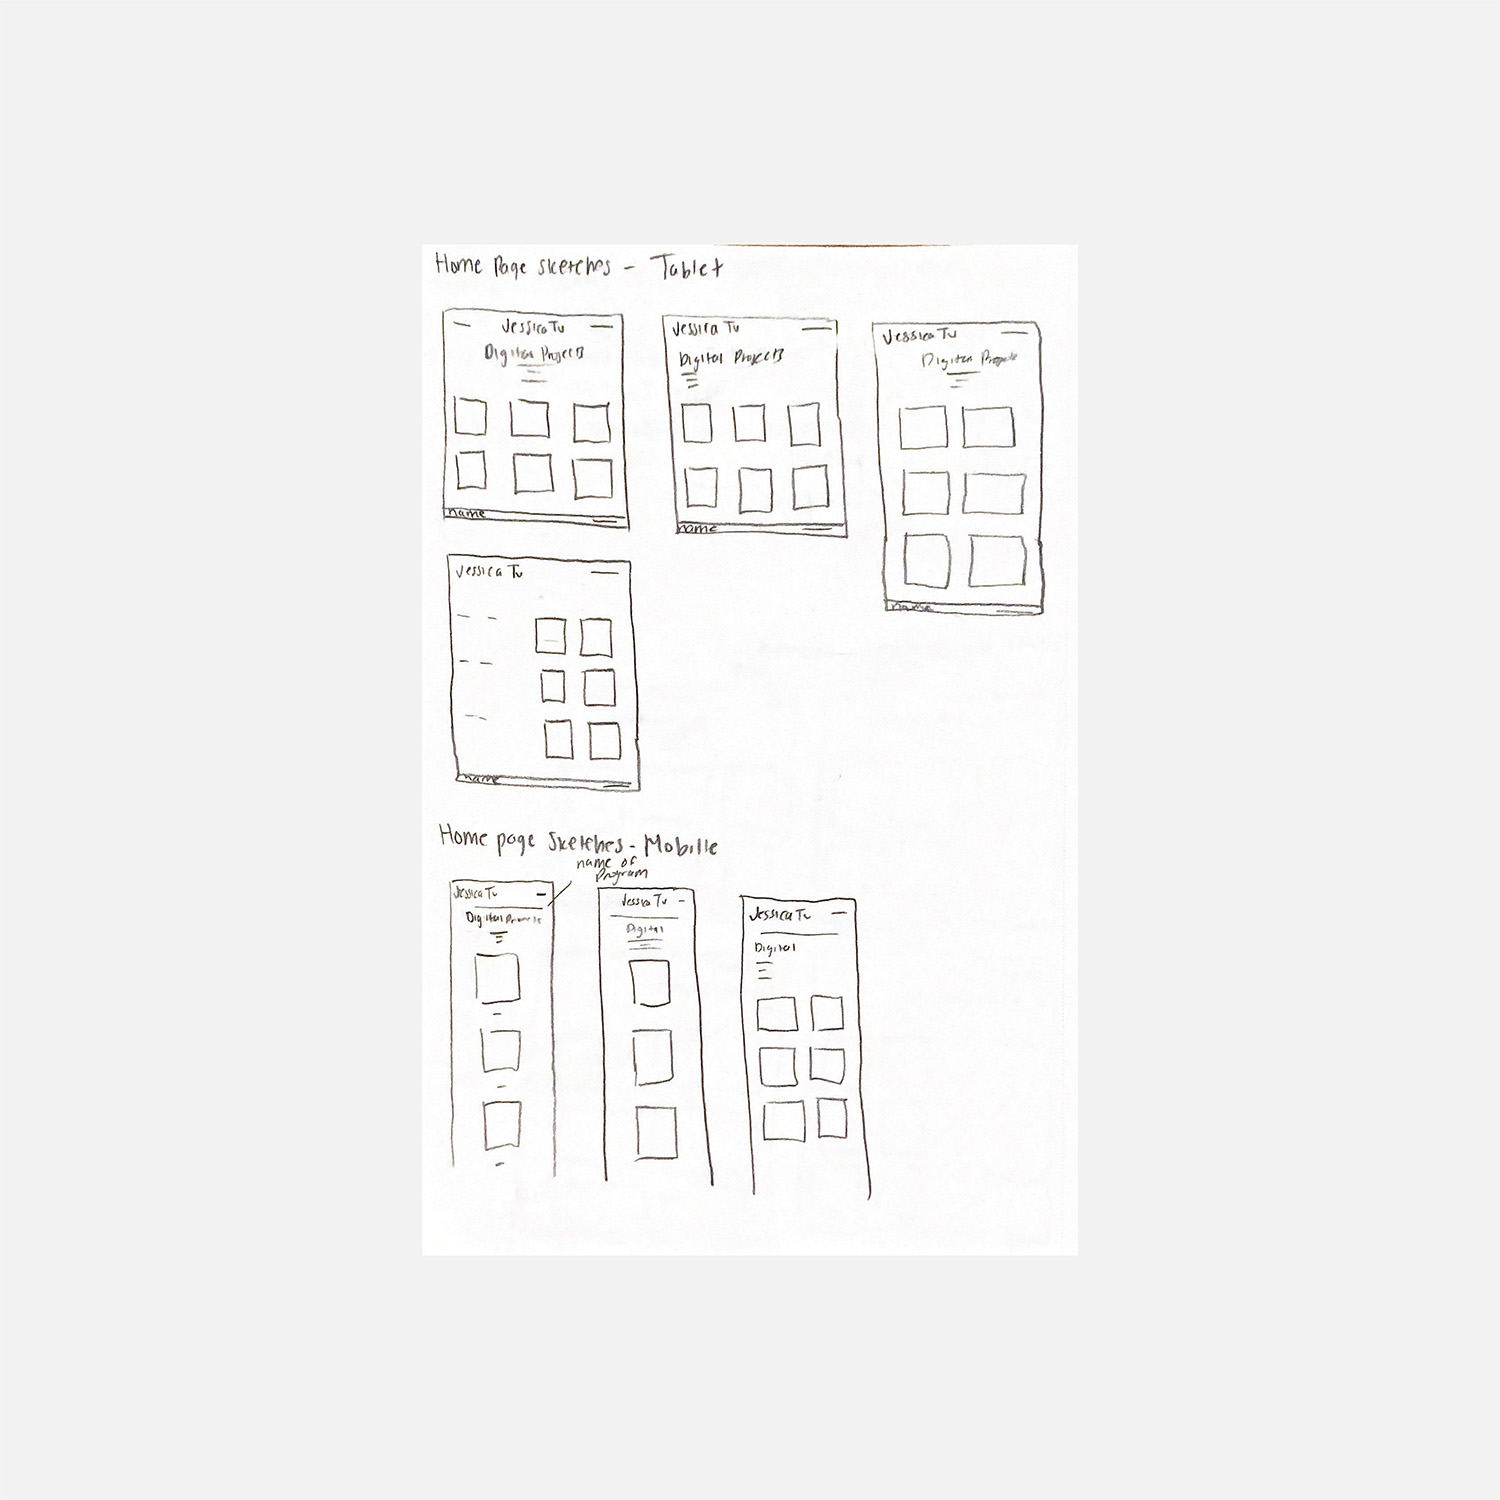 Home Page sketches - Tablet
Jessica Tu
Digital Projects
name
Jessica Tu
Digital Projects
name
Jessica Tu
Digital
name
Jessica Tu
name
Home page sketches - Mobille
name of
Program
Jessica Tu
Digital
Jessica Tu
Digital
Jessica Tu
Digital